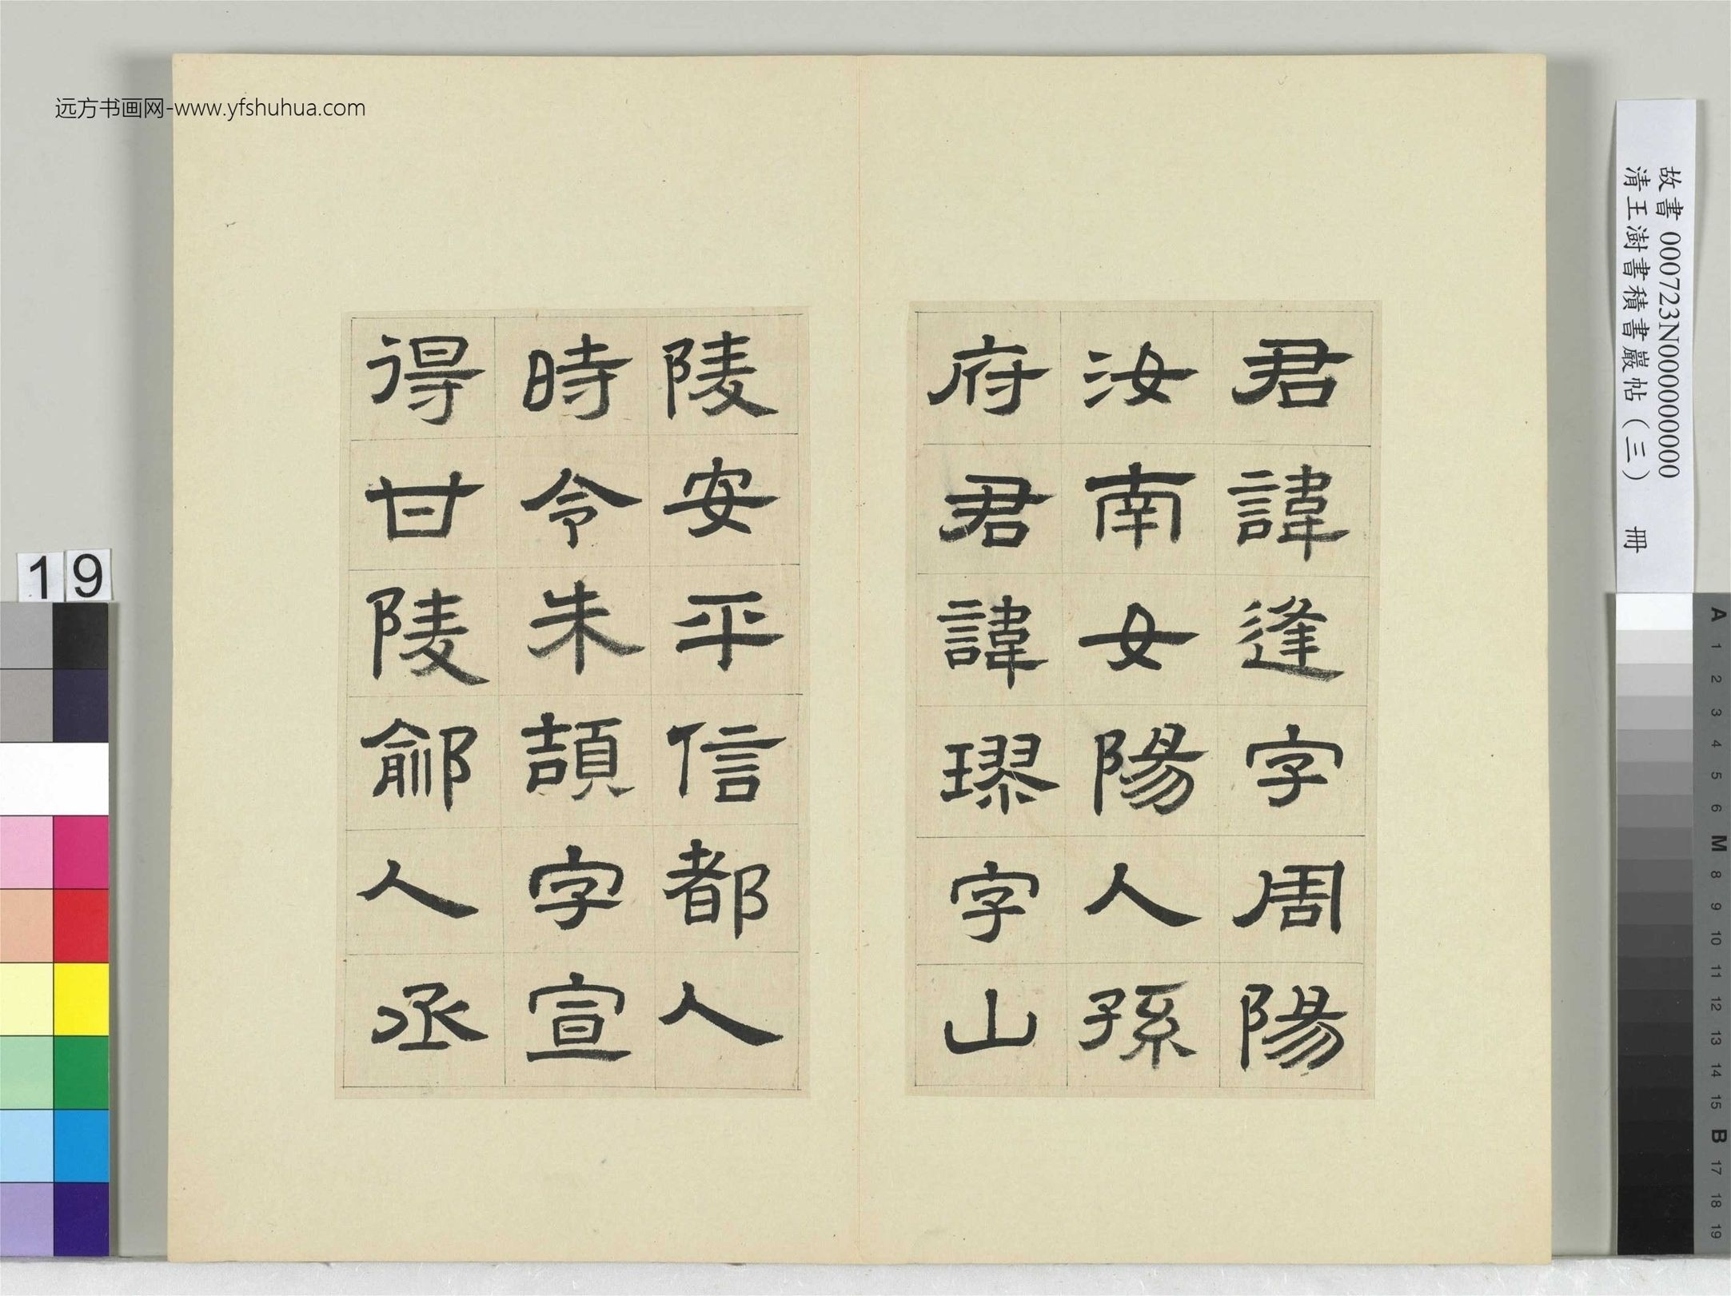 远方书画网-www.yfshuhua.com
故書 000723N000000000
清王澍書積書巖帖（三） 冊
君諱逢字周陽
汝南女陽人孫
府君諱璆字山
陵安平信都人
時令朱頡字宣
得甘陵鄃人丞
19
A 1 2 3 4 5 6 M 8 9 10 11 12 13 14 15 B 17 18 19